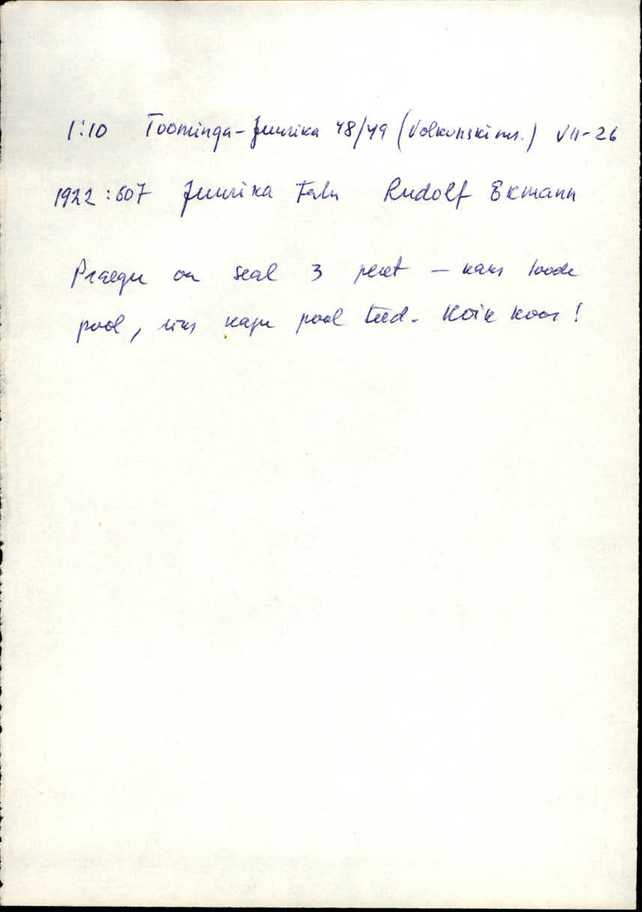 1:10 Toominga-Juurika 48/49 (Volkonski ms.) VII-26
1922:607 Juurika talu Rudolf Ekmann
Praegu on seal 3 peret – kaks loode
pool, üks kagu pool teed. Kõik koos!